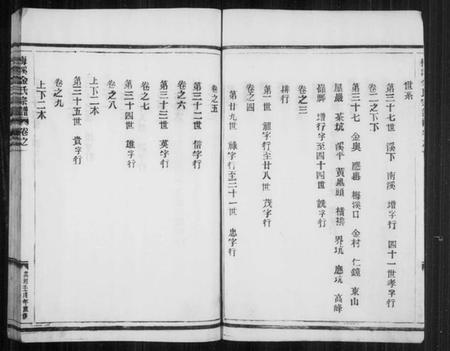 世系
卷二之下下
第三十七世 溪下 南溪 增字行 四十一世孝字行
第三十七 金奧 應嘉 梅溪口 金村 仁鏡 東山
屋嚴 茶坑 溪平 黃鳳頭 橫排 界坑 應坑 高峰
嶺腳 增行字至四十四世 誐字行
卷之三
排行
第一世 龍字行至廿八世 茂字行
卷之四
第廿九世 祿字行至三十一世 忠字行
梅溪金氏宗譜 卷之
卷之五
第三十二世 偕字行
卷之六
第三十三世 英字行
卷之七
第三十四世 雄字行
卷之八
上下二本
第三十五世 貴字行
卷之九
上下二本